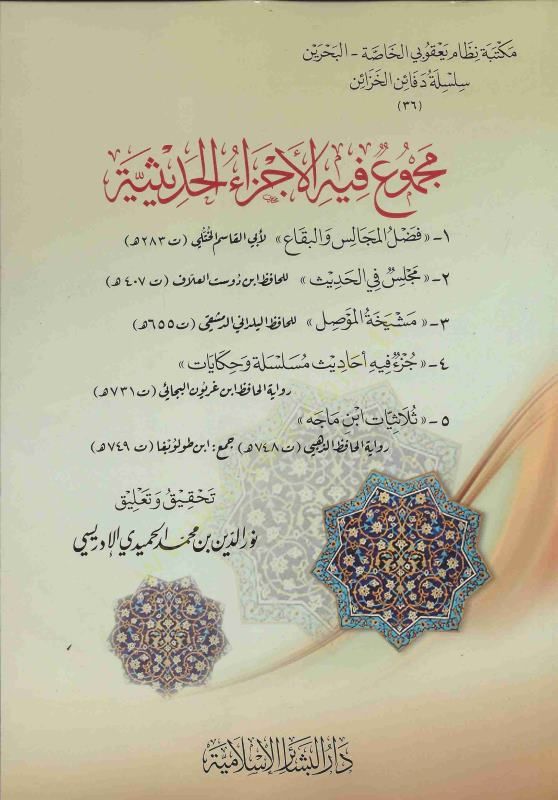 مَكتبَة نِظَام يَعقوبي الخَاصَّة - البَحرَين
سِلسِلَة دَفَائِن الخَزَائِن
(٣٦)
مَجْمُوعٌ فِيهِ الأَجْزَاءُ الحَدِيْثِيَّة
١- «فَضْلُ المَجَالِس وَالبِقَاع» لأبي القاسم الختلي (ت ٢٨٣هـ)
٢- «مَجْلِسٌ فِي الحَدِيْث» للحافظ ابن دُوست العلاف (ت ٤٠٧هـ)
٣- «مَشْيَخَةُ المَوْصِل» للحافظ اليلداني الدمشقي (ت ٦٥٥هـ)
٤- «جُزْءٌ فِيهِ أَحَادِيْث مُسَلسَلَة وَحِكَايَات»
رواية الحافظ ابن غريون البجائي (ت ٧٣١هـ)
٥- «ثُلَاثِيَّات ابْنِ مَاجَه»
رواية الحافظ الذهبي (ت ٧٤٨هـ) جمع: ابن طولوبغا (ت ٧٤٩هـ)
تَحْقِيْق وَتَعْلِيْق
نور الدين بن محمد الحميدي الإدريسي
دَارُ البَشَائِرِ الإِسْلَامِيَّة